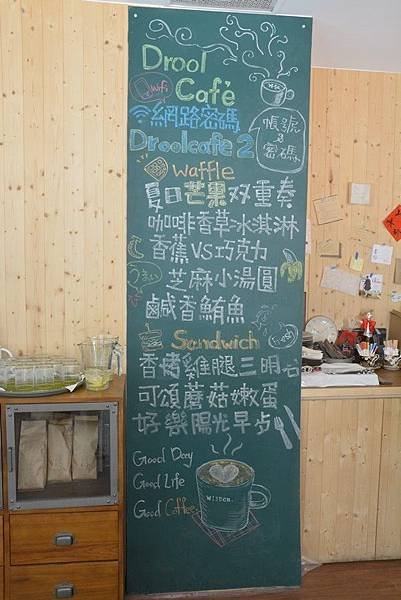 Drool
Café
Wifi
網路密碼
Droolcafe 2
帳號
&
密碼
Waffle
夏日芒果双重奏
咖啡香草冰淇淋
香蕉VS巧克力
芝麻小湯圓
鹹香鮪魚
Sandwich
香烤雞腿三明治
可頌蘑菇嫩蛋
好樂陽光早午
Good Day
Good Life
Good Coffee
WISDOM.